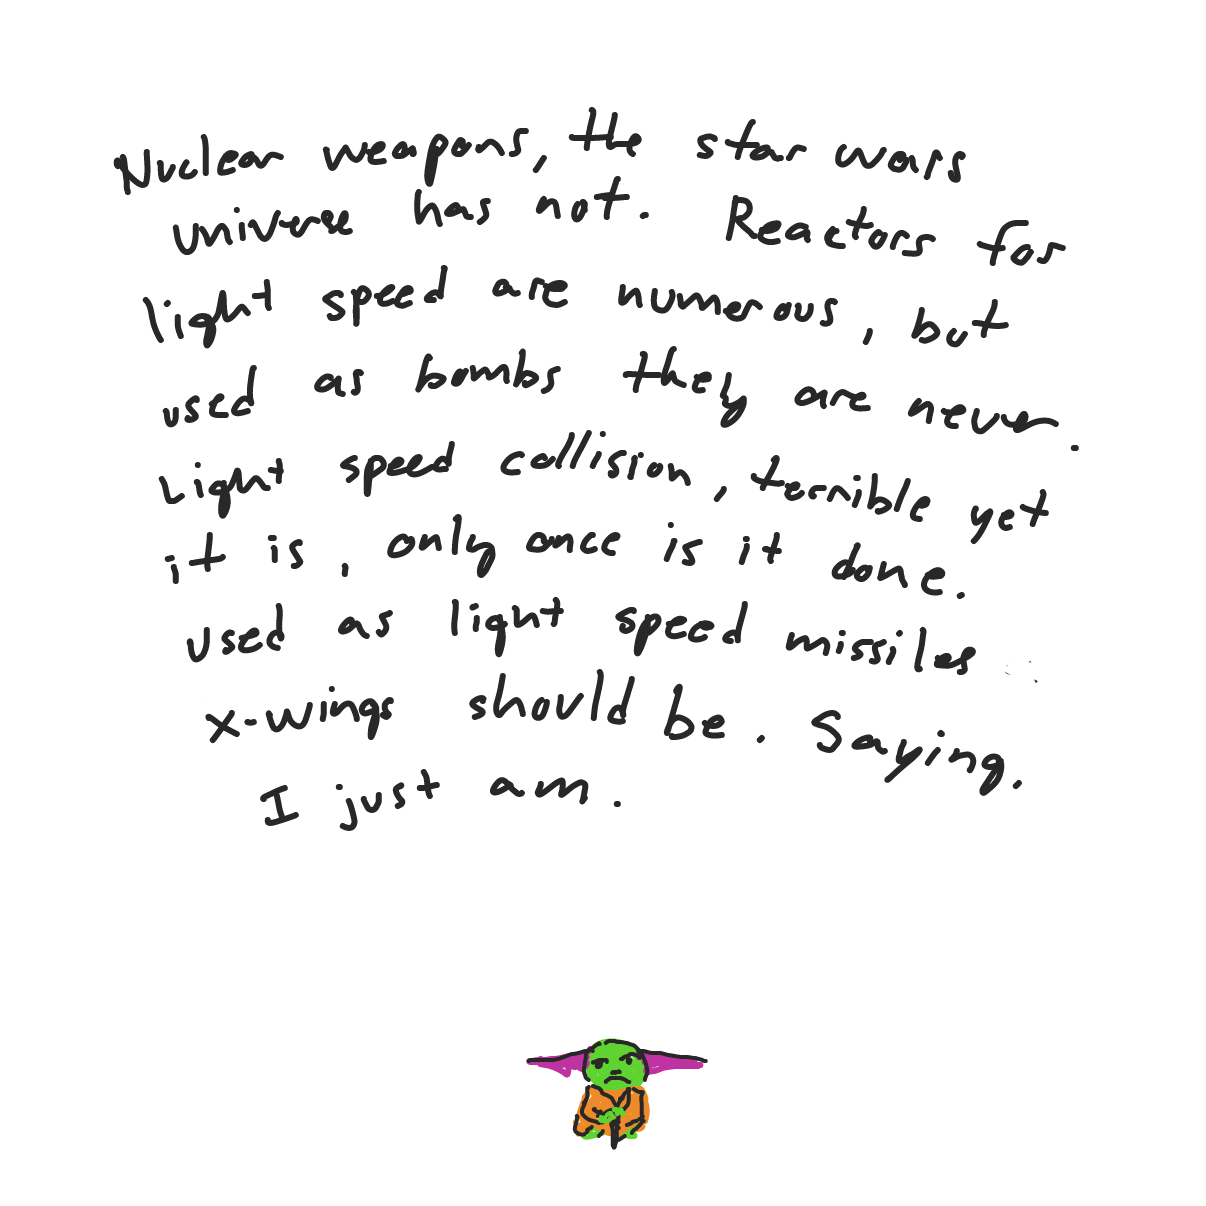 Nuclear weapons, the star wars
universe has not. Reactors for
light speed are numerous, but
used as bombs they are never.
Light speed collision, terrible yet
it is, only once is it done.
used as light speed missiles
x-wings should be. Saying.
I just am.